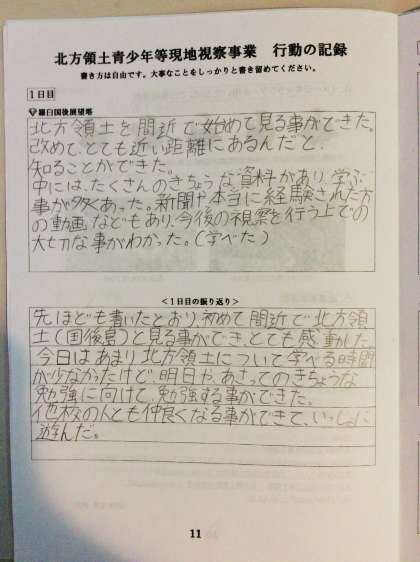 北方領土青少年等現地視察事業　行動の記録
書き方は自由です。大事なことをしっかりと書き留めてください。
1日目
羅臼国後展望塔
北方領土を間近で始めて見る事ができた。
改めて、とても近い距離にあるんだと、
知ることができた。
中には、たくさんのきちょうな資料があり、学ぶ
事が多くあった。新聞や本当に経験された方
の動画などもあり、今後の視察を行う上での
大切な事がわかった。(学べた)
<1日目の振り返り>
先ほども書いたとおり、初めて間近で北方領
土(国後島)と見る事ができ、とても感動した。
今日はあまり北方領土について学べる時間
が少なかったけど、明日や、あさってのきちょうな
勉強に向けて、勉強する事ができた。
他校の人とも仲良くなる事ができて、いっしょに
遊んだ。
11